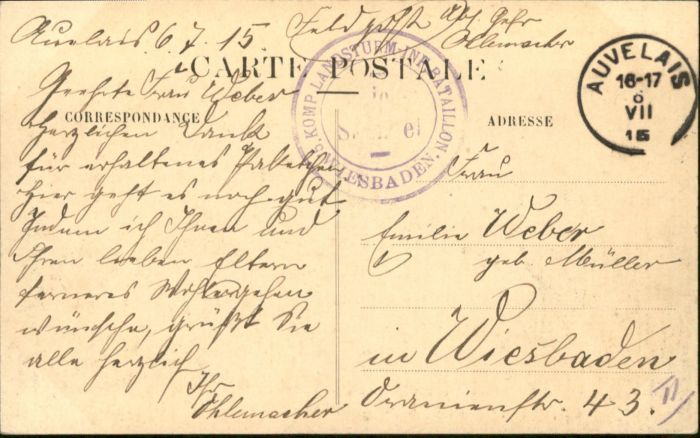 Auvelais 6.7.15 Feldpost Abs. Gefr
Ohlemacher
CARTE POSTALE
CORRESPONDANCE
ADRESSE
5. KOMP. LANDSTURM-INF. BATAILLON WIESBADEN.
AUVELAIS
16-17
8
VII
15
Geehrte Frau Weber
Herzlichen Dank
für erhaltenes Paketchen
Hier geht es noch gut
Indem ich Ihnen und
Ihren lieben Eltern
ferneres Wohlergehen
wünsche, grüßt Sie
alle herzlich
Ihr
Ohlemacher
Frau
Emilie Weber
geb. Müller
in Wiesbaden
Oranienstr. 43.